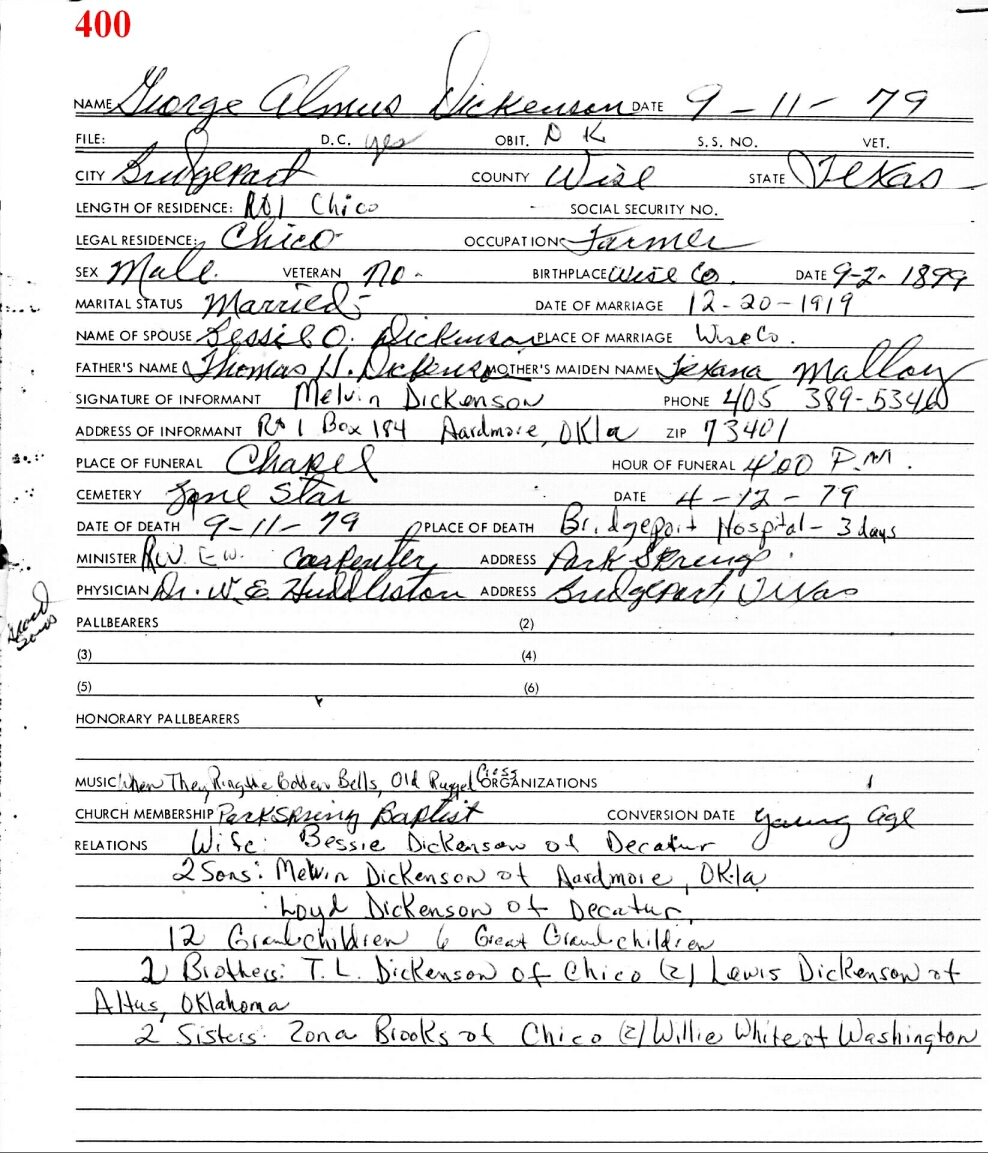 400
NAME George Almus Dickenson DATE 9-11-79
FILE: D.C. yes OBIT. O K S.S. NO. VET.
CITY Bridgeport COUNTY Wise STATE Texas
LENGTH OF RESIDENCE: Rt 1 Chico SOCIAL SECURITY NO.
LEGAL RESIDENCE: Chico OCCUPATION Farmer
SEX Male. VETERAN no- BIRTHPLACE Wise Co. DATE 9-2-1899
MARITAL STATUS Married- DATE OF MARRIAGE 12-20-1919
NAME OF SPOUSE Bessie O. Dickenson PLACE OF MARRIAGE Wise Co.
FATHER'S NAME Thomas H. Dickenson MOTHER'S MAIDEN NAME Texana Malloy
SIGNATURE OF INFORMANT Melvin Dickenson PHONE 405 389-5346
ADDRESS OF INFORMANT Rt 1 Box 184 Aardmore, OKla ZIP 73401
PLACE OF FUNERAL Chapel HOUR OF FUNERAL 4:00 P.M.
CEMETERY Lone Star DATE 4-12-79
DATE OF DEATH 9-11-79 PLACE OF DEATH Bridgeport Hospital- 3 days
MINISTER Rev. E.W. Carpenter ADDRESS Park Springs
PHYSICIAN Dr. W.E. Huddleston ADDRESS Bridgeport, Texas
PALLBEARERS (2)
(3) (4)
(5) (6)
HONORARY PALLBEARERS
MUSIC When They Ring the Golden Bells, Old Rugged Cross ORGANIZATIONS
CHURCH MEMBERSHIP Park Spring Baptist CONVERSION DATE young age
RELATIONS Wife: Bessie Dickenson of Decatur
2 Sons: Melvin Dickenson of Aardmore, OKla
: Loyd Dickenson of Decatur,
12 Grandchildren 6 Great Grandchildren
2 Brothers: T. L. Dickenson of Chico (2) Lewis Dickenson of
Altus, OKlahoma
2 Sisters: Zona Brooks of Chico (2) Willie White of Washington